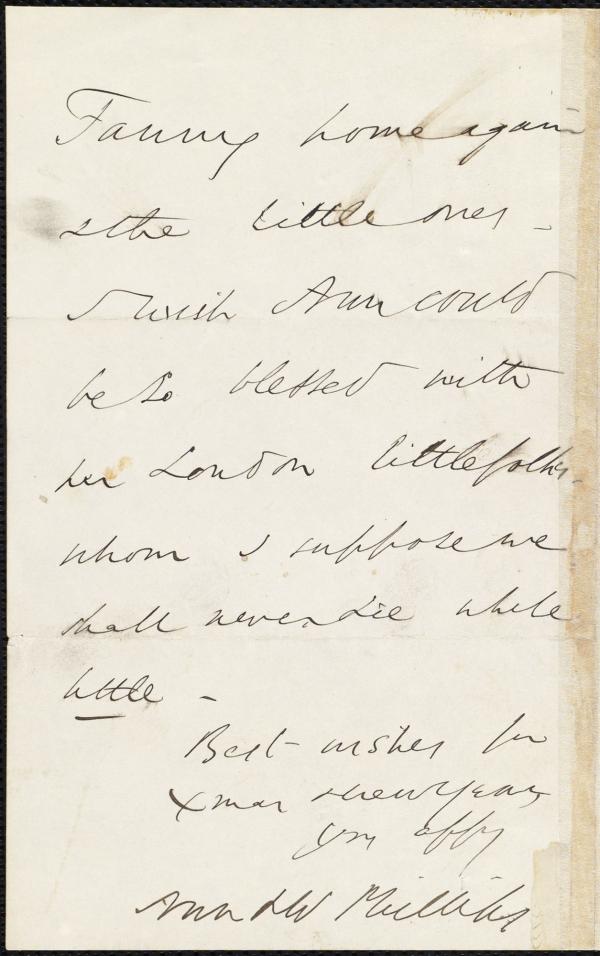 Fanny home again
& the little ones -
I wish Ann could
be so blessed with
her London little folks -
whom I suppose we
shall never see while
little -
Best wishes for
Xmas & new Years
yrs affy
Ann & W Phillips